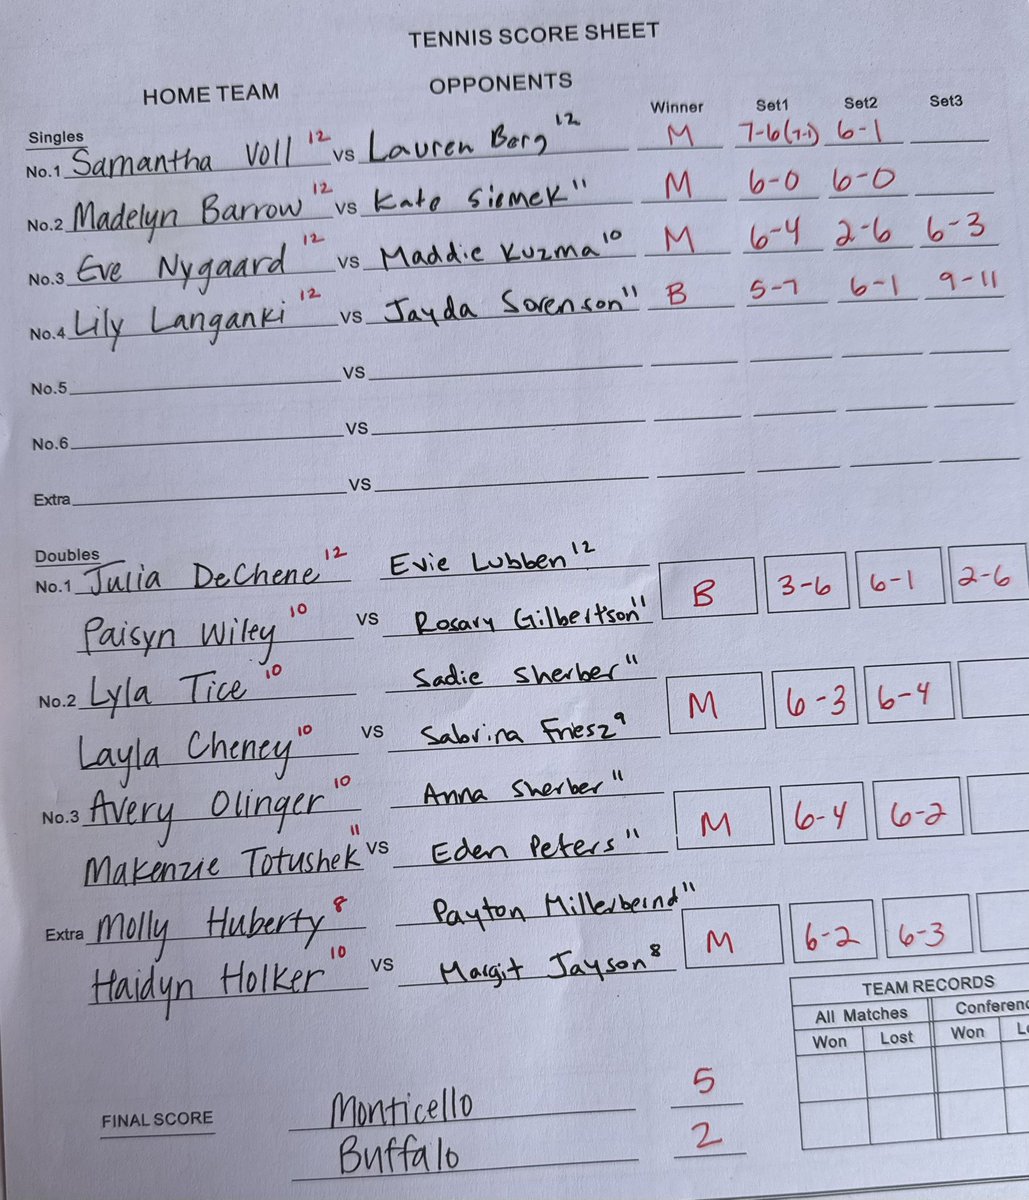 TENNIS SCORE SHEET
HOME TEAM OPPONENTS
Winner Set1 Set2 Set3
Singles
No.1 Samantha Voll 12 vs Lauren Berg 12 M 7-6 (7-1) 6-1
No.2 Madelyn Barrow 12 vs Kate Siemek 11 M 6-0 6-0
No.3 Eve Nygaard 12 vs Maddie Kuzma 10 M 6-4 2-6 6-3
No.4 Lily Langanki 12 vs Jayda Sorenson 11 B 5-7 6-1 9-11
No.5 vs
No.6 vs
Extra vs
Doubles
No.1 Julia DeChene 12 Evie Lubben 12
Paisyn Wiley 10 vs Rosary Gilbertson 11 B 3-6 6-1 2-6
No.2 Lyla Tice 10 Sadie Sherber 11
Layla Cheney 10 vs Sabrina Friesz 9 M 6-3 6-4
No.3 Avery Olinger 10 Anna Sherber 11
Makenzie Totushek 11 vs Eden Peters 11 M 6-4 6-2
Extra Molly Huberty 8 Payton Millerbernd 11
Haidyn Holker 10 vs Margit Jayson 8 M 6-2 6-3
TEAM RECORDS
All Matches Conferenc
Won Lost Won L
FINAL SCORE Monticello 5
Buffalo 2